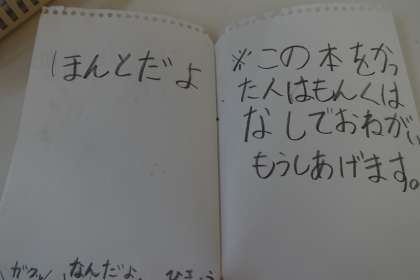 ほんとだよ
※この本をかっ
た人はもんくは
なしでおねがい
もうしあげます。
なんだよ、